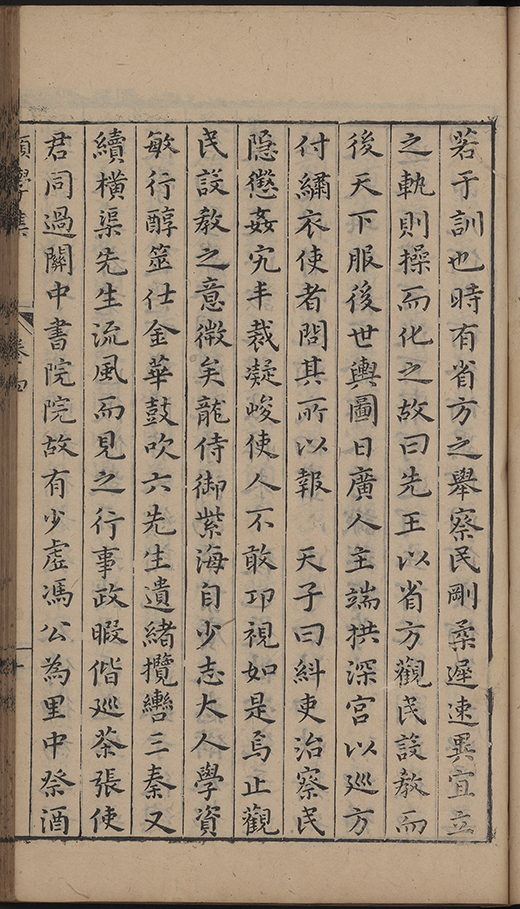 若于訓也時有省方之舉察民剛柔遲速異宜立
之軌則操而化之故曰先王以省方觀民設教而
後天下服後世輿圖日廣人主端拱深宮以廵方
付繡衣使者問其所以報　天子曰糾吏治察民
隱懲姦宄丰裁凝峻使人不敢卭視如是焉止觀
民設教之意微矣龍侍御紫海自少志大人學資
敏行醇筮仕金華鼓吹六先生遺緒攬轡三秦又
續橫渠先生流風而見之行事政暇偕廵茶張使
君同過關中書院院故有少虛馮公為里中祭酒
學集
卷四